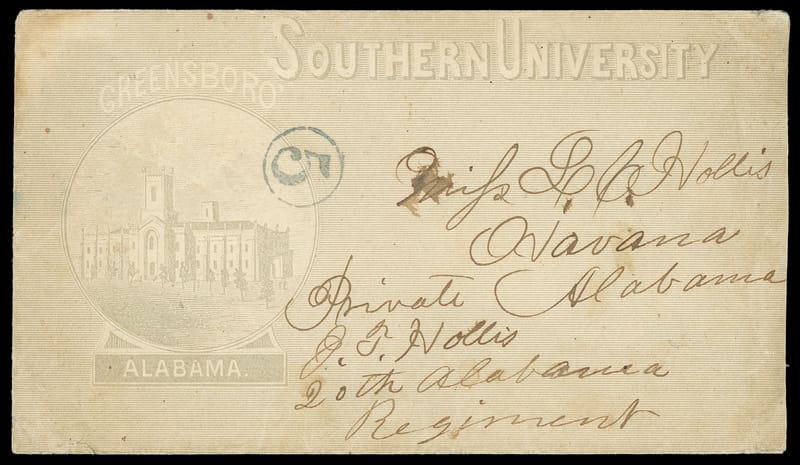 SOUTHERN UNIVERSITY
GREENSBORO'
5
Miss L. C. Hollis
Havana
Alabama
Private
J. T. Hollis
20th Alabama
Regiment
ALABAMA.